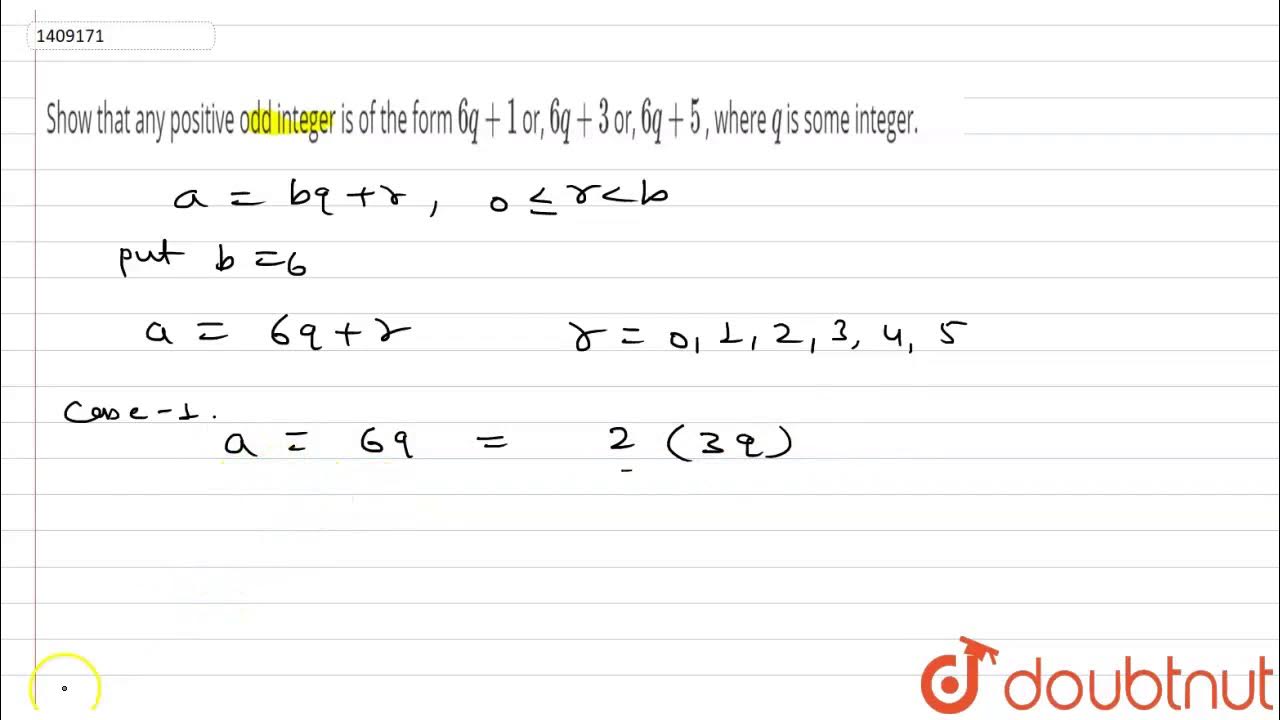 1409171
Show that any positive odd integer is of the form 6q + 1 or, 6q + 3 or, 6q + 5, where q is some integer.
a = bq + r, 0 ≤ r < b
put b = 6
a = 6q + r r = 0, 1, 2, 3, 4, 5
Case - 1.
a = 6q = 2 (3q)
doubtnut